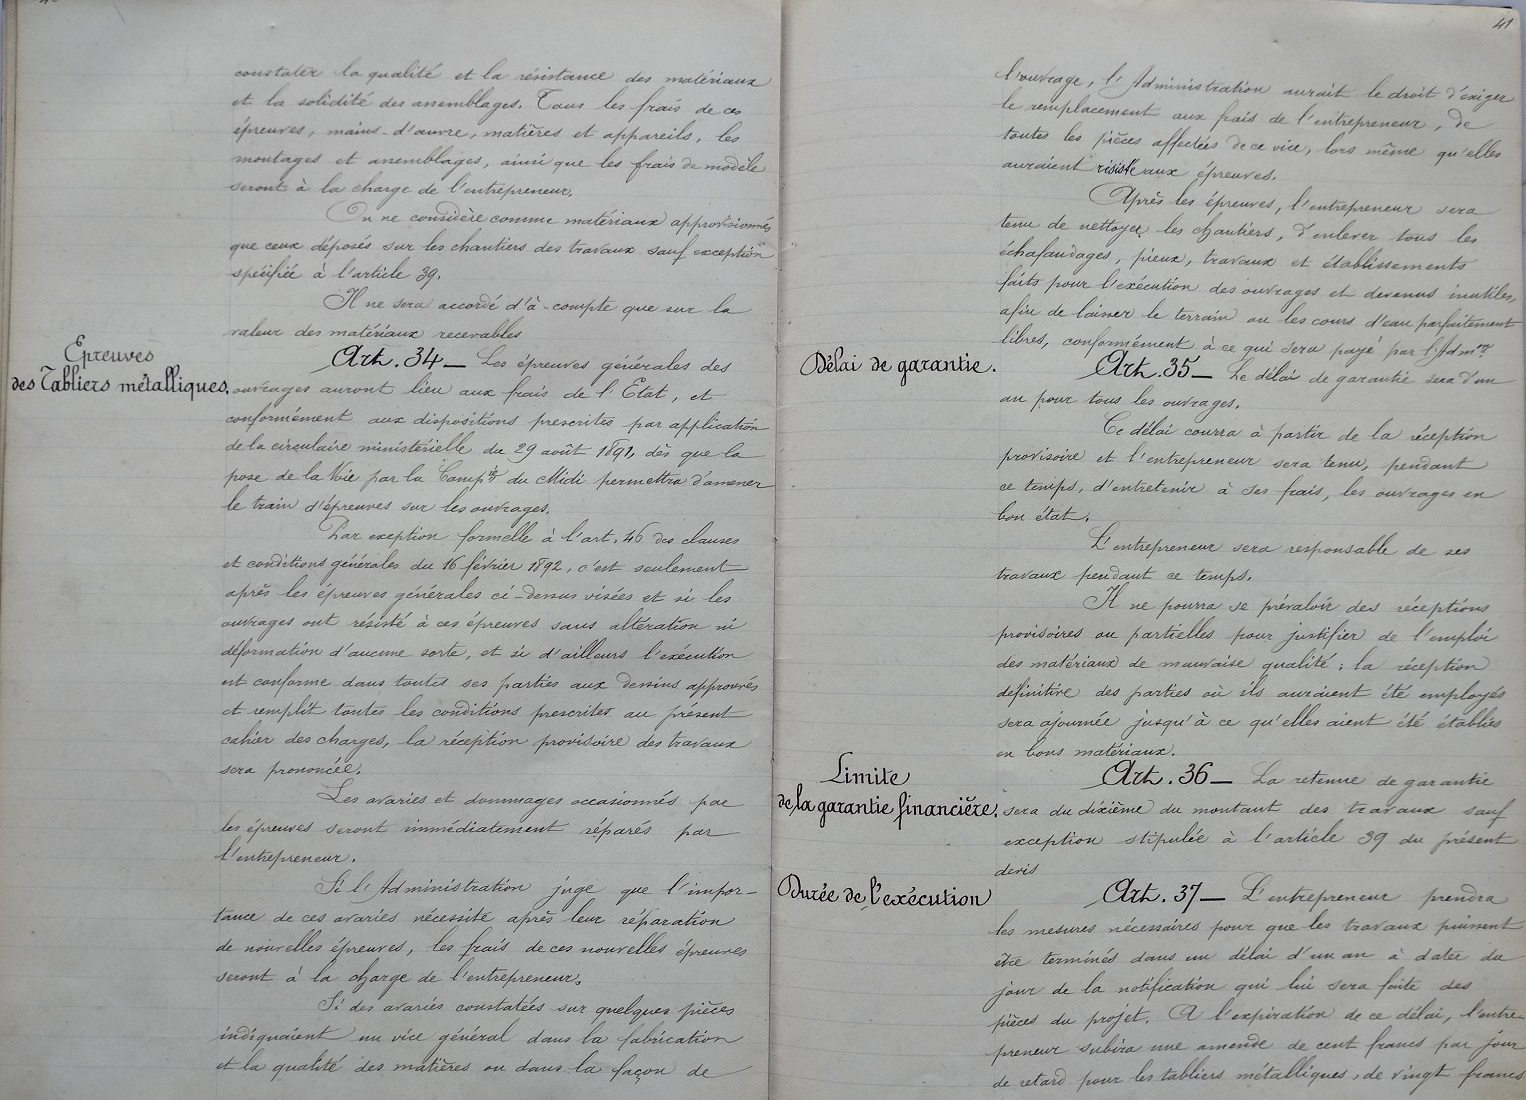 constater la qualité et la résistance des matériaux
et la solidité des assemblages. Tous les frais de ces
épreuves, mains-d'œuvre, matières et appareils, les
montages et assemblages, ainsi que les frais de modèle
seront à la charge de l'entrepreneur.
On ne considère comme matériaux approvisionnés
que ceux déposés sur les chantiers des travaux sauf exception
spécifiée à l'article 39.
Il ne sera accordé d'à-compte que sur la
valeur des matériaux recevables
Epreuves
des Tabliers métalliques.
Art. 34 — Les épreuves générales des
ouvrages auront lieu aux frais de l'Etat, et
conformément aux dispositions prescrites par application
de la circulaire ministérielle du 29 août 1891, dès que la
pose de la Voie par la Compie du Midi permettra d'amener
le train d'épreuves sur les ouvrages.
Par exeption formelle à l'art. 46 des clauses
et conditions générales du 16 février 1892, c'est seulement
après les épreuves générales ci-dessus visées et si les
ouvrages ont résisté à ces épreuves sans altération ni
déformation d'aucune sorte, et si d'ailleurs l'exécution
est conforme dans toutes ses parties aux dessins approuvés
et remplit toutes les conditions prescrites au présent
cahier des charges, la réception provisoire des travaux
sera prononcée.
Les avaries et dommages occasionnés par
les épreuves seront immédiatement réparés par
l'entrepreneur.
Si l'Administration juge que l'impor-
tance de ces avaries nécessite après leur réparation
de nouvelles épreuves, les frais de ces nouvelles épreuves
seront à la charge de l'entrepreneur.
Si des avaries constatées sur quelques pièces
indiquaient un vice général dans la fabrication
et la qualité des matières ou dans la façon de
41
l'ouvrage, l'Administration aurait le droit d'exiger
le remplacement aux frais de l'entrepreneur, de
toutes les pièces affectées de ce vice, lors même qu'elles
auraient résisté aux épreuves.
Après les épreuves, l'entrepreneur sera
tenu de nettoyer les chantiers, d'enlever tous les
échafaudages, pieux, travaux et établissements
faits pour l'exécution des ouvrages et devenus inutiles,
afin de laisser le terrain ou les cours d'eau parfaitement
libres, conformément à ce qui sera payé par l'Admon.
Délai de garantie.
Art. 35 — Le délai de garantie sera d'un
an pour tous les ouvrages.
Ce délai courra à partir de la réception
provisoire et l'entrepreneur sera tenu, pendant
ce temps, d'entretenir à ses frais, les ouvrages en
bon état.
L'entrepreneur sera responsable de ses
travaux pendant ce temps.
Il ne pourra se prévaloir des réceptions
provisoires ou partielles pour justifier de l'emploi
des matériaux de mauvaise qualité ; la réception
définitive des parties où ils auraient été employés
sera ajournée jusqu'à ce qu'elles aient été établies
en bons matériaux.
Limite
de la garantie financière.
Art. 36 — La retenue de garantie
sera du dixième du montant des travaux sauf
exception stipulée à l'article 39 du présent
devis
Durée de l'exécution
Art. 37 — L'entrepreneur prendra
les mesures nécessaires pour que les travaux puissent
être terminés dans un délai d'un an à dater du
jour de la notification qui lui sera faite des
pièces du projet. A l'expiration de ce délai, l'entre-
preneur subira une amende de cent francs par jour
de retard pour les tabliers métalliques, de vingt francs